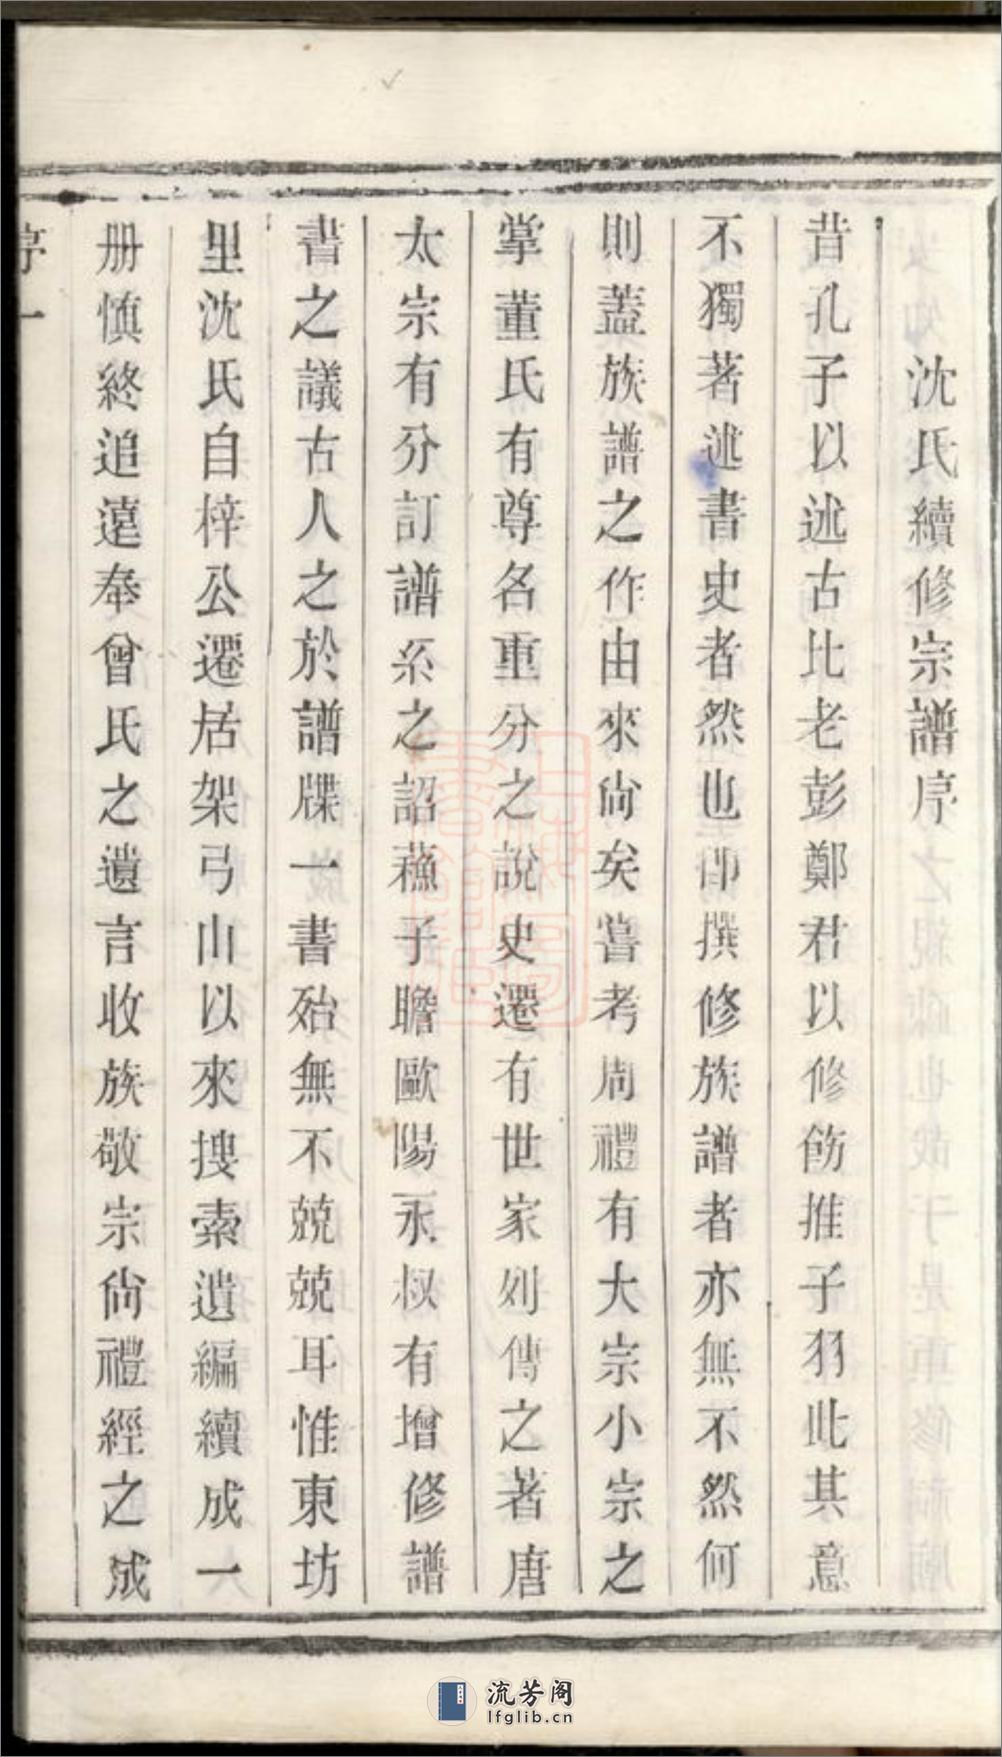 沈氏續修宗譜序
昔孔子以述古比老彭鄭君以修飭推子羽此其意
不獨著述書史者然也即撰修族譜者亦無不然何
則蓋族譜之作由來尙矣嘗考周禮有大宗小宗之
掌董氏有尊名重分之說史遷有世家列傳之著唐
太宗有分訂譜系之詔蘓子瞻歐陽永叔有增修譜
書之議古人之於譜牒一書殆無不兢兢耳惟東坊
里沈氏自梓公遷居架弓山以來搜索遺編續成一
册慎終追遠奉曾氏之遺言收族敬宗尙禮經之成
序一
流芳阁
lfglib.cn